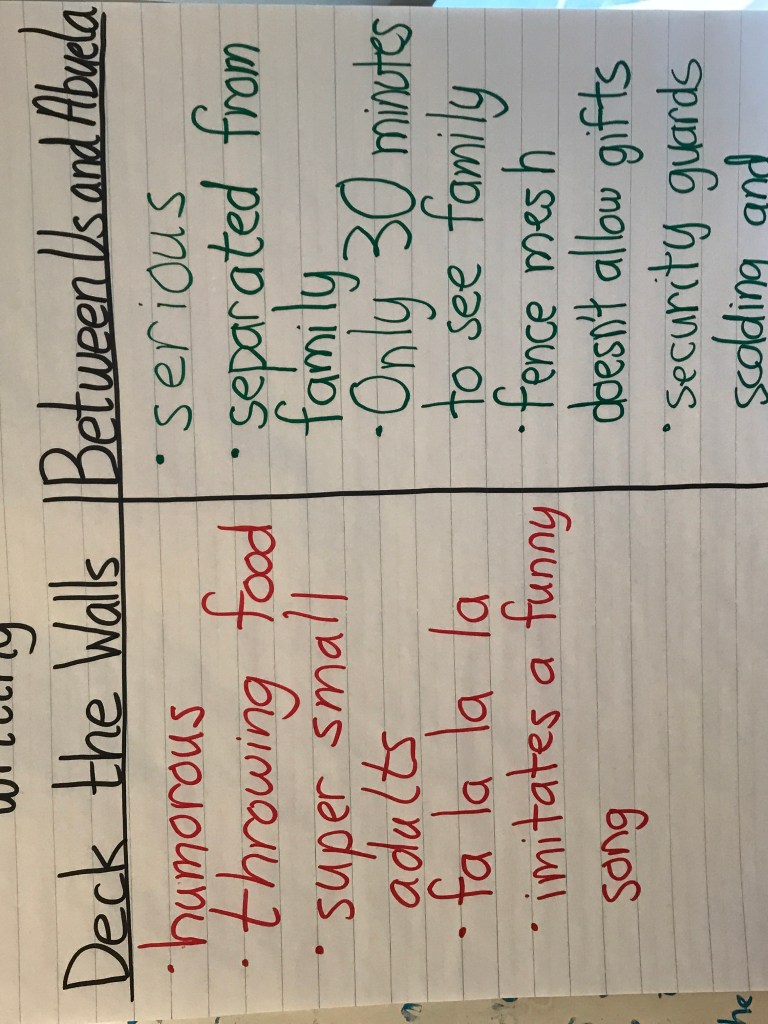 writing
Deck the Walls | Between Us and Abuela
• humorous
• throwing food
• super small
adults
• fa la la la la
• imitates a funny
song
• serious
• separated from
family
• Only 30 minutes
to see family
• fence mesh
doesn't allow gifts
• security guards
scolding and
he